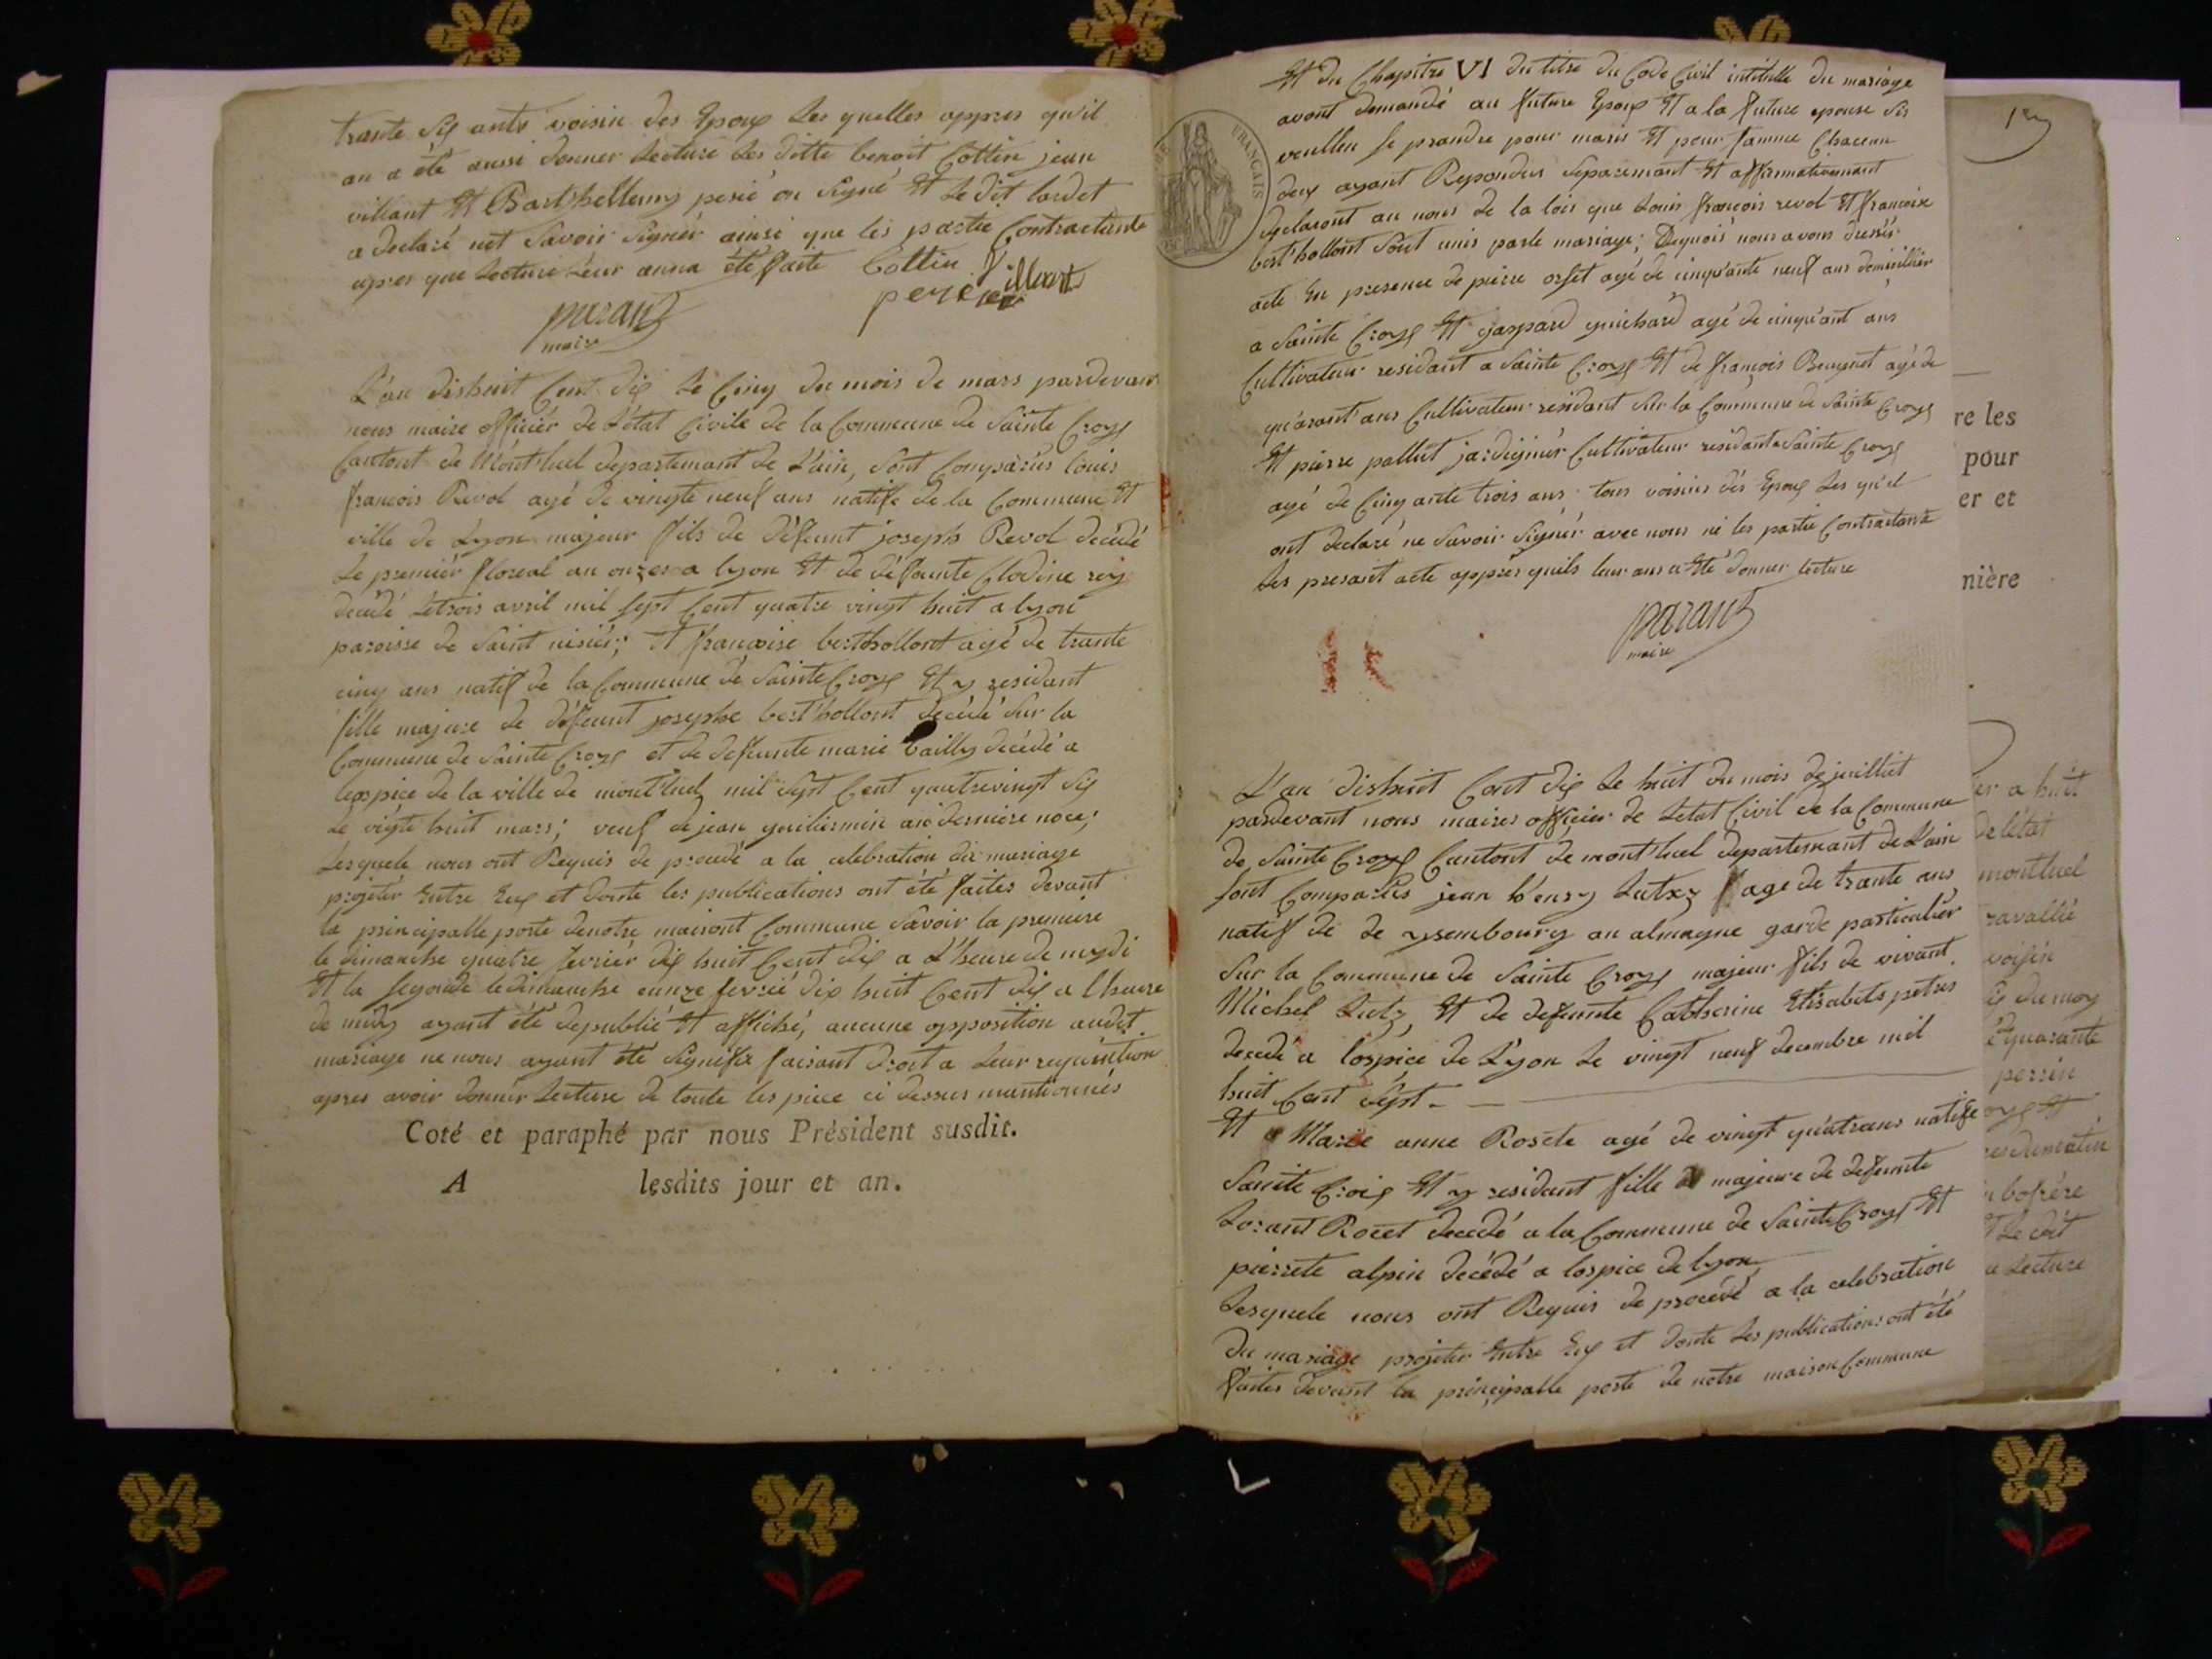 trante six ants voisin des Epoux Les quelles appres qu'il
an a été aussi donner Lecture Les ditte benoit Cottin jean
villiant Et Bart'hellemy perié on Signé Et Le dit lardet
a declaré net Savoir Signér ainsi que les partie Contractante
apres que Lecture Leur anna été faite Cottin Villiant
perier
paran
maire
L'an dishuit Cent dix Le Cinq du mois de mars pardevan
nous maire officiér de L'état Civile de la Commune de Sainte Croyx
Cantont de Mont'luel departemant de L'ain, Sont Comparus Louis
françois Revol agé de vingte neuf ans natife de la Commune Et
ville de Lyon majeur fils de défeunt joseph Revol décédé
Le premiér floreal an onzes a lyon Et de défunte Clodine rey
décédé Letrois avril mil Sept Cent quatre vingt huit a lyon
paroisse de Saint nisiér; Et françoise bert'hollont agé de trante
cinq ans natif de la Commune de Sainte Croyx Et y residant
fille majure de défeunt josephe bert'hollont decédé Sur la
Commune de Sainte Croyx et de defeunte marie bailly décédé a
lospice de la ville de mont'luel mil Sept Cent quatrevingt Six
Le vigte huit mars; veuf de jean guiliermin an dernière noce;
Lesquele nous ont Requis de procedé a la celebration du mariage
projetér Entre Eux et donte les publications ont été faites devant
la principalle porte denotre maisont Commune Savoir la premiere
le dimanche quatre fevriér dix huit Cent dix a L'heure de mydi
Et la Segonde le dimanche aunze fevrié dix huit Cent dix a Lheure
de midy ayant été depublié Et affiché, aucune opposition audit
mariage ne nous ayant été Signifix faisant droit a Leur requisition
apres avoir donnér Lecture de toute les pièce ci dessus mantionnés
Coté et paraphé par nous Président susdit.
A lesdits jour et an.
Et du Chapitre VI du titre du Code Civil intitulle du mariage
avont demandé au future Epoux Et a la future epouse Sis
veullen Se prandre pour maris Et pour famme Chacenu
deux ayant Repondus Separemant Et affarmativemant
declaront au nons de la lois que Louis françois revol Et françoise
bert'hollont Sont unis parle mariage; Dequois nous avons dressés
acte En presence de pierre orset agé de cinquante neuf ans domicilier
a Sainte Croyx Et gaspard guichard agé de cinqu'ant ans
Cultivateur residant a Sainte Croyx Et de françois Beugnet agé de
qu'arant ans Cultivateur residant Sur la Commune de Sainte Croyx
Et pierre pallut jardigniér Cultivateur residant a Sainte Croyx
agé de Cinq ante trois ans tous voisins dés Epoux Les qu'el
ont declaré ne Savoir Signér avec nous ni les partie Contractante
Les presant acte appres quils leur ans a Eté donner Lecture
paran
maire
L'an dishuit Cent dix Le huit du mois de juilliet
pardevant nous maires officier de Letat Civil de la Commune
de Sainte Croyx Cantont de mont'luel departemant de L'ain
Sont Comparus jean h'enry Lutzy age de trante ans
natif de de ysembourg an almagne garde particuliér
Sur la Commune de Sainte Croyx majeur fils de vivant
Michel Lutz Et de defeunte Catherine Elisabets petres
decedé a lospice de Lyon Le vingt neuf decembre mil
huit Cent Sept
Et Marie anne Rosete agé de vingt quatreans natife
Sainte Croix Et y residant fille majeure de defeunte
Lorant Rocet decedé a la Commune de Sainte Croyx Et
pierrete alpin décédé a lospice de lyon
Lesquele nous ont Requis de procédé a la celebration
du mariage projeter Entre Eux et donte Les publications ont été
faites devant la principalle porte de notre maison Commune
FRANÇAIS
re les
pour
er et
nière
ier a huit
de létat
montluel
ravallié
voisin
du moy
quarante
perrin
bofrére
Le dit
a Lecture